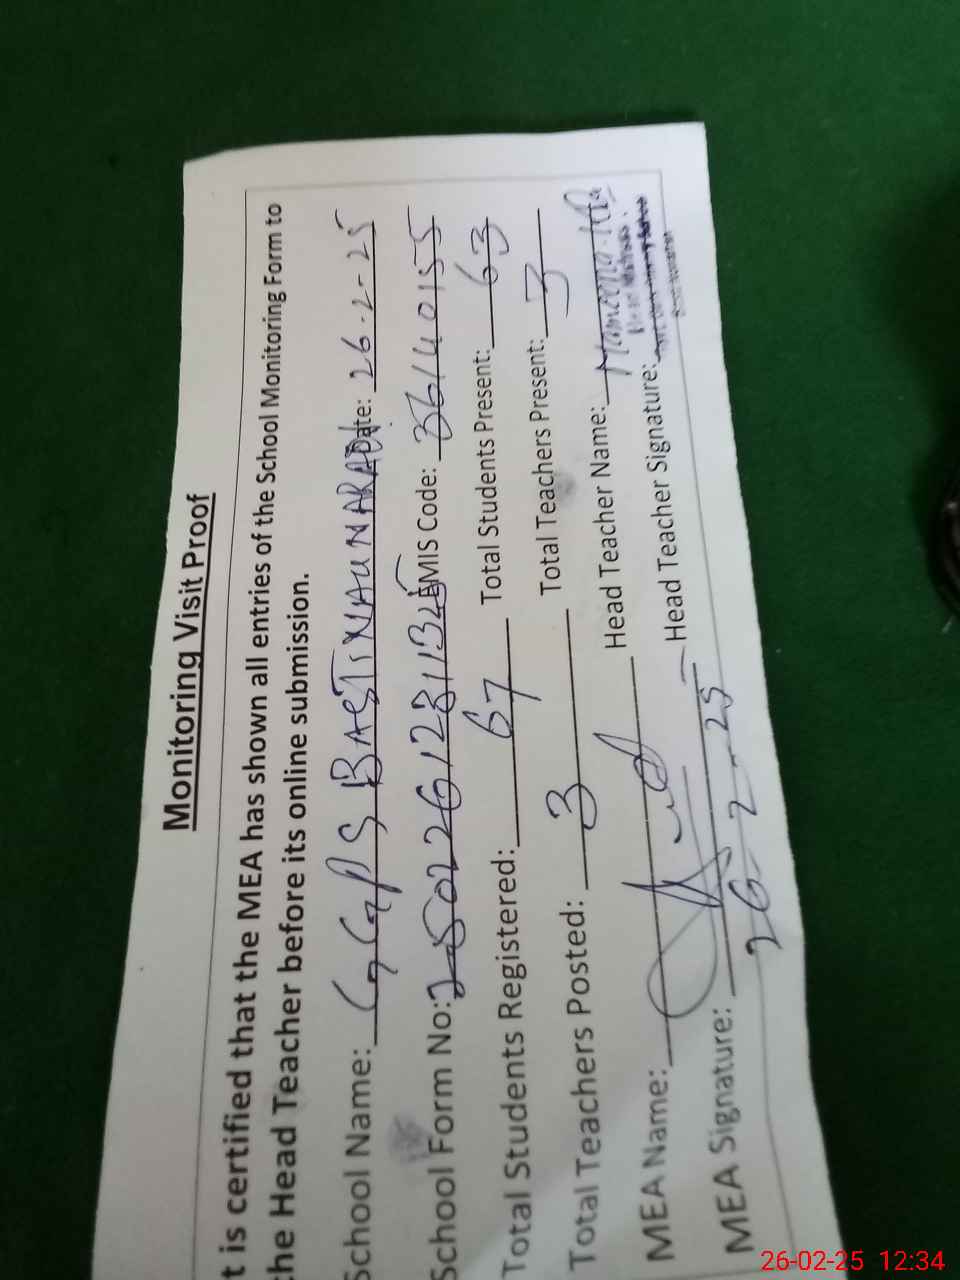 Monitoring Visit Proof
t is certified that the MEA has shown all entries of the School Monitoring Form to
the Head Teacher before its online submission.
School Name: GGPS BASTI NAUNARADate: 26-2-25
School Form No: EMIS Code: 36140155
Total Students Registered: 67 Total Students Present: 63
Total Teachers Posted: 3 Total Teachers Present: 3
MEA Name: Head Teacher Name:
MEA Signature: Head Teacher Signature:
26-2-25
26-02-25 12:34